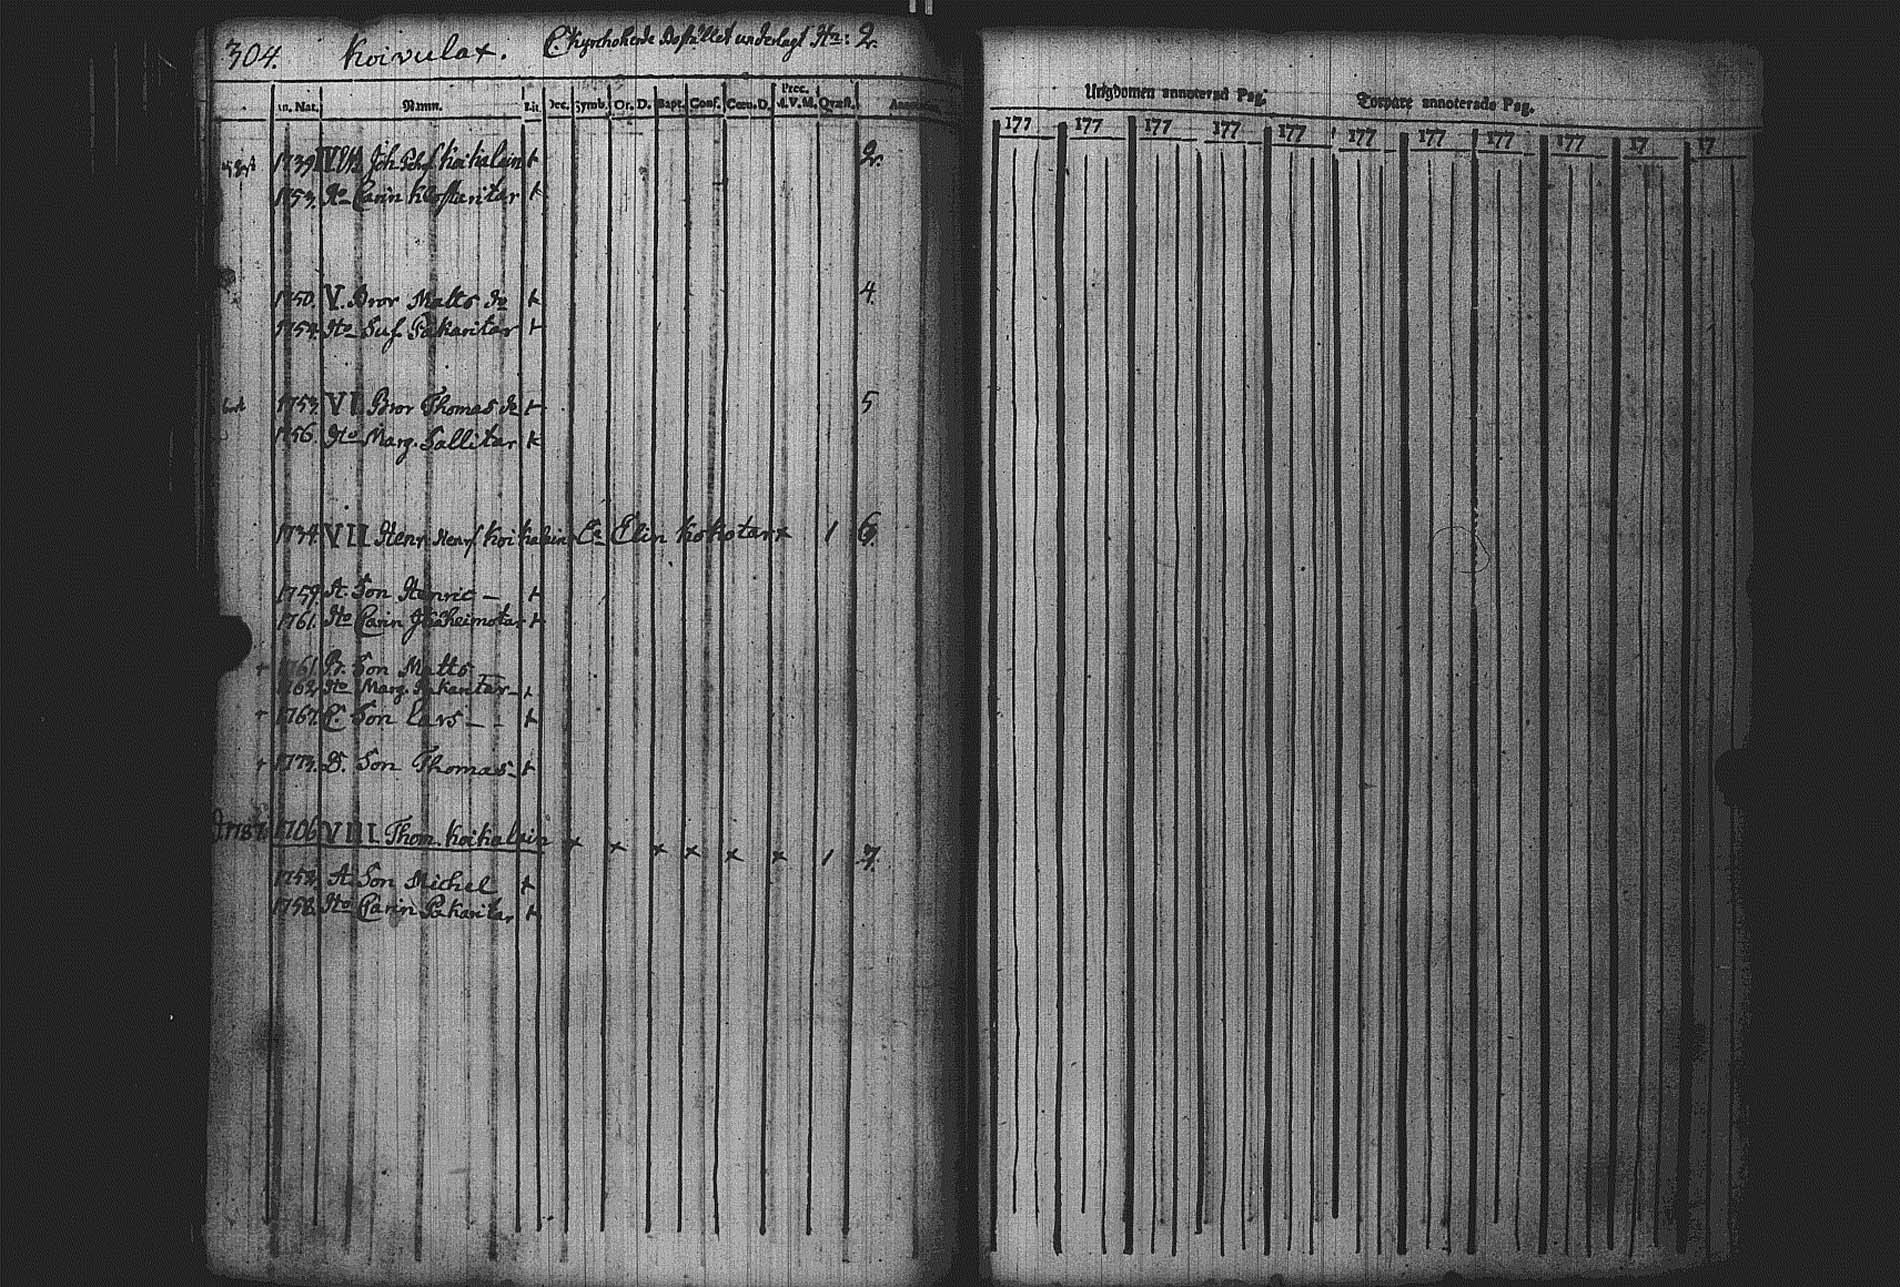 304. Koivulax. C. Kyrckoherde Bostället underlagt No: 2.
An. Nat. Namn. Lit. Dec. Symb. Or. D. Bapt. Conf. Cœn. D. Prec. M. V. M. Quæst. Annotation.
1739 IV Joh. Koikalain + 2.
1753. Ho Carin +
1750. V. Bror Matts do + 4.
1754. Ho Sus. Pakaritar +
1753. VI Bror Thomas do + 5
1756. Ho Marg. Sallitar +
1734. VII Henr. Henrs. Koikalain Ca Elin Kokotar x 1 6.
1759. A. Son Henric — +
1761. Ho Carin +
+ 1761. B. Son Matts
1762. Ho Marg. Pakaritar +
+ 1767. C. Son Lars — - +
+ 1773. D. Son Thomas - +
1787. 1706 VIII Thom. Koikalain x x x x x x 1 7.
1752. A. Son Michel +
1758. Ho Carin Pakaritar +
Ungdomen annoterad Pag. Torpare annoterade Pag.
177 177 177 177 177 177 177 177 177 17 17